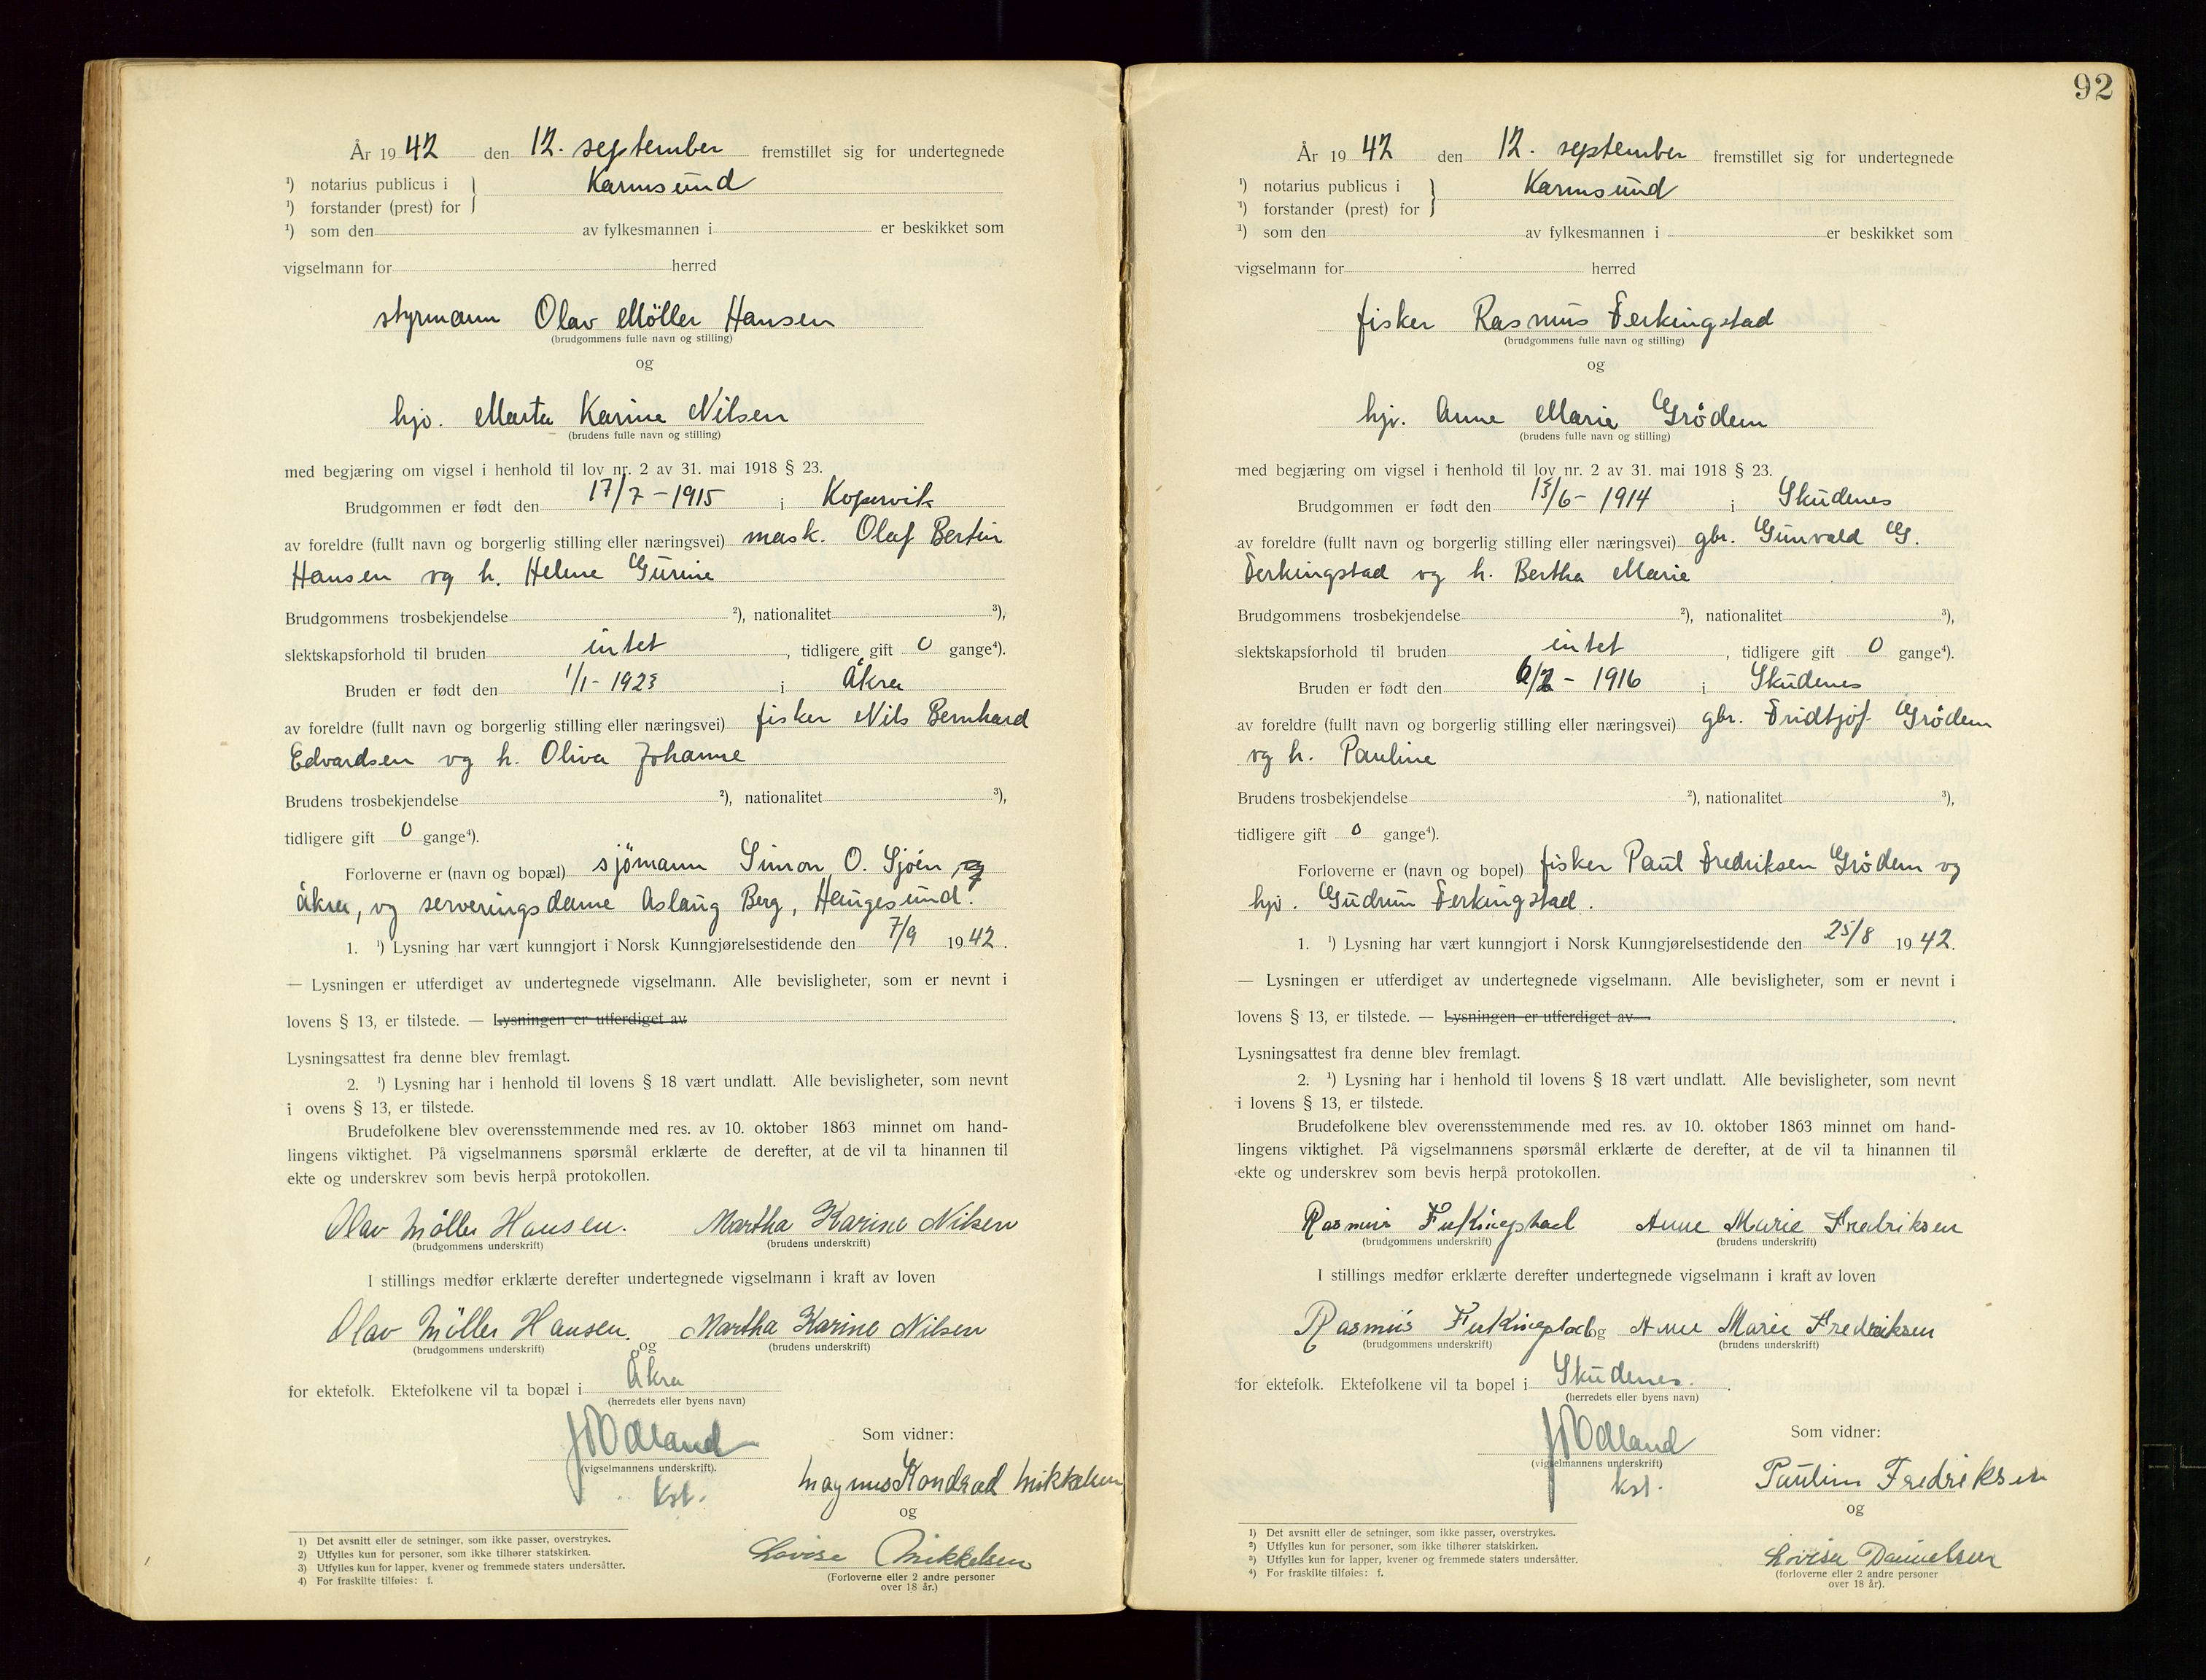 År 1942 den 12. september fremstillet sig for undertegnede
¹) notarius publicus i } Karmsund
¹) forstander (prest) for
¹) som den av fylkesmannen i er beskikket som
vigselmann for herred
styrmann Olav Möller Hansen
(brudgommens fulle navn og stilling)
og
hjv. Marta Karine Nilsen
(brudens fulle navn og stilling)
med begjæring om vigsel i henhold til lov nr. 2 av 31. mai 1918 § 23.
Brudgommen er født den 17/7 - 1915 i Kopervik
av foreldre (fullt navn og borgerlig stilling eller næringsvei) mask. Olaf Bertin
Hansen og h. Helene Gurine
Brudgommens trosbekjendelse ²), nationalitet ³),
slektskapsforhold til bruden intet, tidligere gift 0 gange⁴).
Bruden er født den 1/1 - 1923 i Åkra
av foreldre (fullt navn og borgerlig stilling eller næringsvei) fisker Nils Bernhard
Edvardsen og h. Oliva Johanne
Brudens trosbekjendelse ²), nationalitet ³),
tidligere gift 0 gange⁴).
Forloverne er (navn og bopæl) sjömann Simon O. Sjöen, og
Åkra, og serveringsdame Aslaug Berg, Haugesund.
1. ¹) Lysning har vært kunngjort i Norsk Kunngjørelsestidende den 7/9 1942.
— Lysningen er utferdiget av undertegnede vigselmann. Alle bevisligheter, som er nevnt i
lovens § 13, er tilstede. — Lysningen er utferdiget av
Lysningsattest fra denne blev fremlagt.
2. ¹) Lysning har i henhold til lovens § 18 vært undlatt. Alle bevisligheter, som nevnt
i ovens § 13, er tilstede.
Brudefolkene blev overensstemmende med res. av 10. oktober 1863 minnet om hand-
lingens viktighet. På vigselmannens spørsmål erklærte de derefter, at de vil ta hinannen til
ekte og underskrev som bevis herpå protokollen.
Olav Möller Hansen. Martha Karine Nilsen
(brudgommens underskrift) (brudens underskrift)
I stillings medfør erklærte derefter undertegnede vigselmann i kraft av loven
Olav Möller Hansen. og Martha Karine Nilsen
(brudgommens underskrift) (brudens underskrift)
for ektefolk. Ektefolkene vil ta bopæl i Åkra
(herredets eller byens navn)
Odland Som vidner:
(vigselmannens underskrift).
kst. Magnus Kondrad Mikkelsen
og
Lovise Mikkelsen
(Forloverne eller 2 andre personer
over 18 år.)
1) Det avsnitt eller de setninger, som ikke passer, overstrykes.
2) Utfylles kun for personer, som ikke tilhører statskirken.
3) Utfylles kun for lapper, kvener og fremmede staters undersåtter.
4) For fraskilte tilføies: f.
92
År 1942 den 12. september fremstillet sig for undertegnede
¹) notarius publicus i } Karmsund
¹) forstander (prest) for
¹) som den av fylkesmannen i er beskikket som
vigselmann for herred
fisker Rasmus Ferkingstad
(brudgommens fulle navn og stilling)
og
hjv. Anne Marie Grödem
(brudens fulle navn og stilling)
med begjæring om vigsel i henhold til lov nr. 2 av 31. mai 1918 § 23.
Brudgommen er født den 13/6 - 1914 i Skudenes
av foreldre (fullt navn og borgerlig stilling eller næringsvei) gbr. Gunvald G.
Ferkingstad og h. Bertha Marie
Brudgommens trosbekjendelse ²), nationalitet ³),
slektskapsforhold til bruden intet, tidligere gift 0 gange⁴).
Bruden er født den 6/2 - 1916 i Skudenes
av foreldre (fullt navn og borgerlig stilling eller næringsvei) gbr. Fridtjof Grödem
og h. Pauline
Brudens trosbekjendelse ²), nationalitet ³),
tidligere gift 0 gange⁴).
Forloverne er (navn og bopel) fisker Paul Fredriksen Grödem og
hjv. Gudrun Ferkingstad.
1. ¹) Lysning har vært kunngjort i Norsk Kunngjørelsestidende den 25/8 1942.
— Lysningen er utferdiget av undertegnede vigselmann. Alle bevisligheter, som er nevnt i
lovens § 13, er tilstede. — Lysningen er utferdiget av
Lysningsattest fra denne blev fremlagt.
2. ¹) Lysning har i henhold til lovens § 18 vært undlatt. Alle bevisligheter, som nevnt
i lovens § 13, er tilstede.
Brudefolkene blev overensstemmende med res. av 10. oktober 1863 minnet om hand-
lingens viktighet. På vigselmannens spørsmål erklærte de derefter, at de vil ta hinannen til
ekte og underskrev som bevis herpå protokollen.
Rasmus Ferkingstad Anne Marie Fredriksen
(brudgommens underskrift) (brudens underskrift)
I stillings medfør erklærte derefter undertegnede vigselmann i kraft av loven
Rasmus Ferkingstad og Anne Marie Fredriksen
(brudgommens underskrift) (brudens underskrift)
for ektefolk. Ektefolkene vil ta bopel i Skudenes.
(herredets eller byens navn)
Odland Som vidner:
(vigselmannens underskrift)
kst. Paulin Fredriksen
og
Lovise Danielsen
(forloverne eller 2 andre personer
over 18 år).
1) Det avsnitt eller de setninger, som ikke passer, overstrykes.
²) Utfylles kun for personer, som ikke tilhører statskirken.
³) Utfylles kun for lapper, kvener og fremmede staters undersåtter.
⁴) For fraskilte tilføies: f.